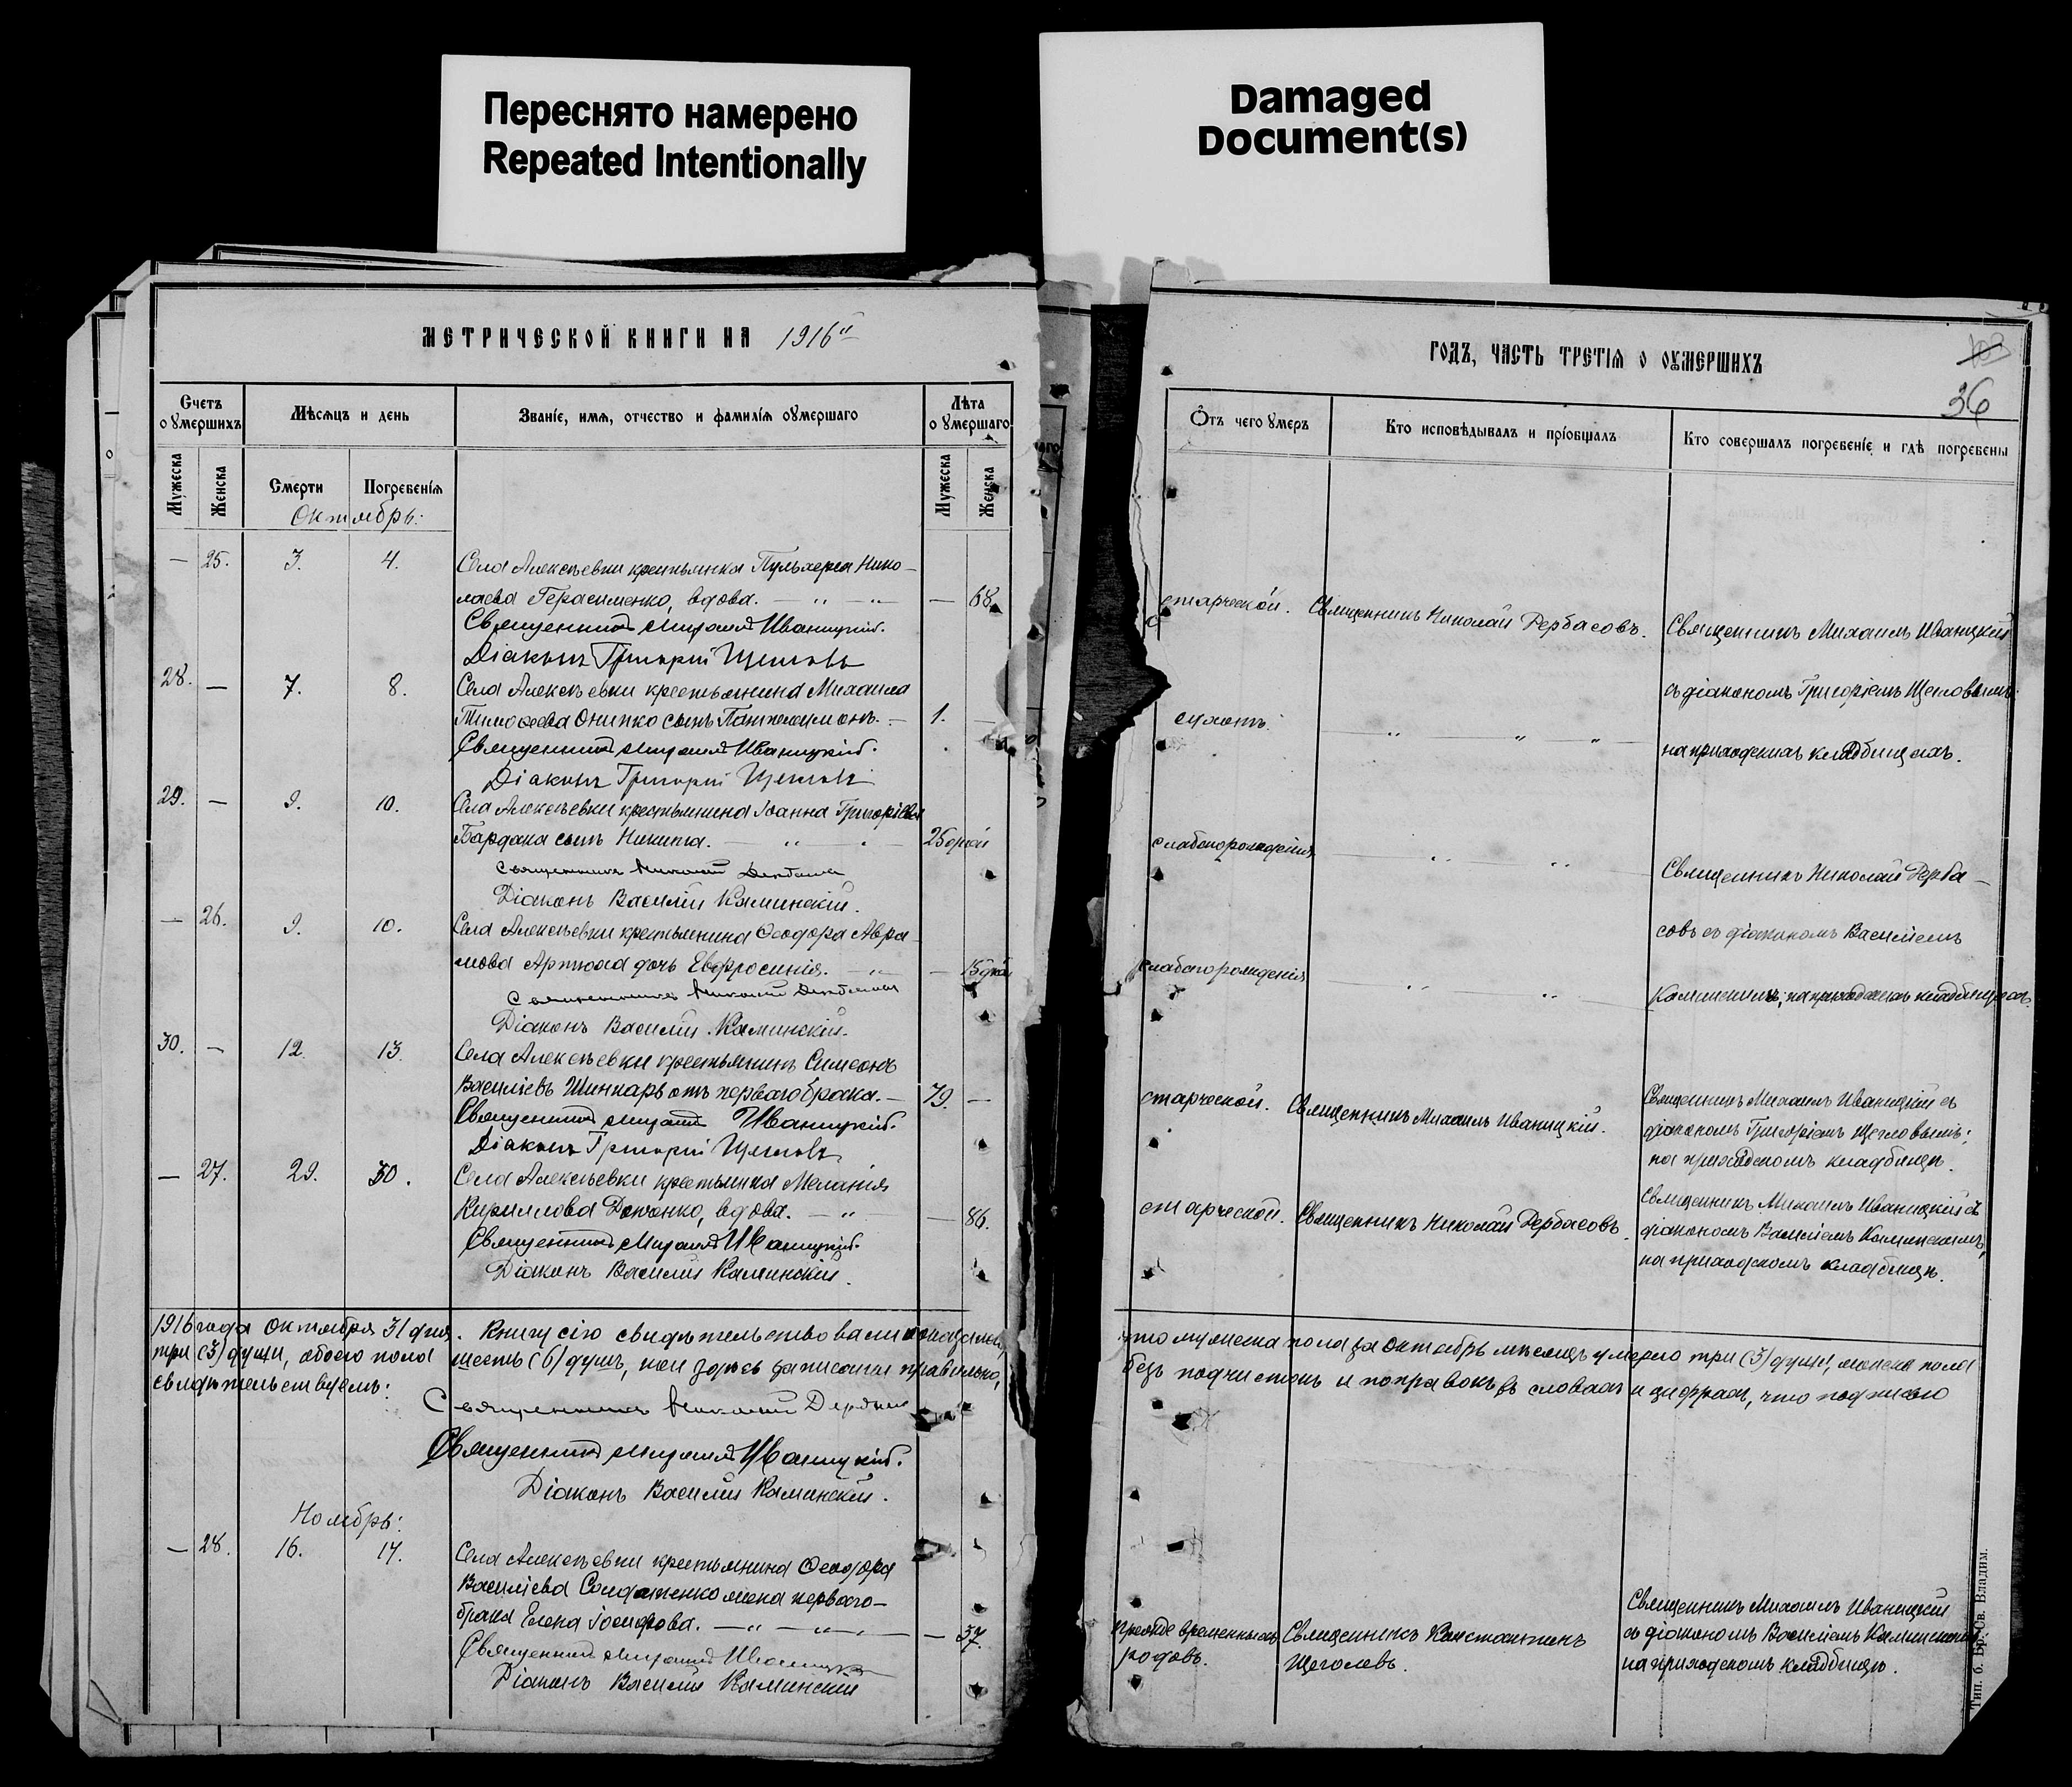 Переснято намерено
Repeated Intentionally
Damaged
Document(s)
МЕТРИЧЕСКОЙ КНИГИ НА 1916й
Счетъ о умершихъ
Мѣсяцъ и день
Званіе, имя, отчество и фамилія умершаго
Лѣта о умершаго
Мужеска
Женска
Смерти
Погребенія
Мужеска
Женска
Октябрь:
— 25. 3. 4. Села Алексѣевки крестьянка Пульхерія Нико-
лаева Герасименко, вдова. — „ — „ — 68
Священникъ Михаилъ Иваницкій.
Діаконъ Григорій Щегловъ
28. — 7. 8. Села Алексѣевки крестьянина Михаила
Тимоѳеева Онипко сынъ Пантелеимонъ. — 1. —
Священникъ Михаилъ Иваницкій.
Діаконъ Григорій Щегловъ
29. — 9. 10. Села Алексѣевки крестьянина Іоанна Григоріева
Бардака сынъ Никита. — „ 25 дней
Священникъ Николай Дербасовъ
Діаконъ Василій Каминскій.
— 26. 9. 10. Села Алексѣевки крестьянина Ѳеодора Авра-
мова Артюха дочь Евфросинія. — „ — 15 дней
Священникъ Николай Дербасовъ
Діаконъ Василій Каминскій.
30. — 12. 13. Села Алексѣевки крестьянинъ Симеонъ
Василіевъ Шинкарь отъ перваго брака. — 79. —
Священникъ Михаилъ Иваницкій.
Діаконъ Григорій Щегловъ
— 27. 29. 30. Села Алексѣевки крестьянка Меланія
Кириллова Доценко, вдова. — „ — 86.
Священникъ Михаилъ Иваницкій.
Діаконъ Василій Каминскій.
1916 года Октября 31 дня. Книгу сію свидѣтельствовали
три (3) души, обоего пола шесть (6) душъ, кои здѣсь записаны правильно,
свидѣтельствуемъ:
Священникъ Николай Дербасовъ
Священникъ Михаилъ Иваницкій.
Діаконъ Василій Каминскій.
Ноябрь:
— 28. 16. 17. Села Алексѣевки крестьянина Ѳеодора
Василіева Солдатенко жена перваго-
брака Елена Іосифова. — „ — „ — 37.
Священникъ Михаилъ Иваницкій
Діаконъ Василій Каминскій
ГОДЪ, ЧАСТЬ ТРЕТІЯ О УМЕРШИХЪ
103
36
Отъ чего умеръ
Кто исповѣдывалъ и пріобщалъ
Кто совершалъ погребеніе и гдѣ погребены
старческой. Священникъ Николай Дербасовъ. Священникъ Михаилъ Иваницкій
съ діакономъ Григоріемъ Щегловымъ;
— „ „ „ —
на приходскихъ кладбищахъ.
слабаго рожденія — „ „ —
Священникъ Николай Дерба-
совъ съ діакономъ Василіемъ
слабаго рожденія — „ „ —
Каминскимъ; на приходскихъ кладбищахъ
старческой. Священникъ Михаилъ Иваницкій.
Священникъ Михаилъ Иваницкій съ
діакономъ Григоріемъ Щегловымъ;
на приходскомъ кладбищѣ.
старческой. Священникъ Николай Дербасовъ.
Священникъ Михаилъ Иваницкій съ
діакономъ Василіемъ Каминскимъ;
на приходскомъ кладбищѣ.
что мужеска пола за Октябрь мѣсяцъ умерло три (3) души, женска пола
безъ подчистокъ и поправокъ въ словахъ и цифрахъ, что подписью
преждевременныхъ
родовъ.
Священникъ Константинъ
Щеголевъ.
Священникъ Михаилъ Иваницкій
съ діакономъ Василіемъ Каминскимъ;
на приходскомъ кладбищѣ.
Тип. б. Бр. Св. Владим.